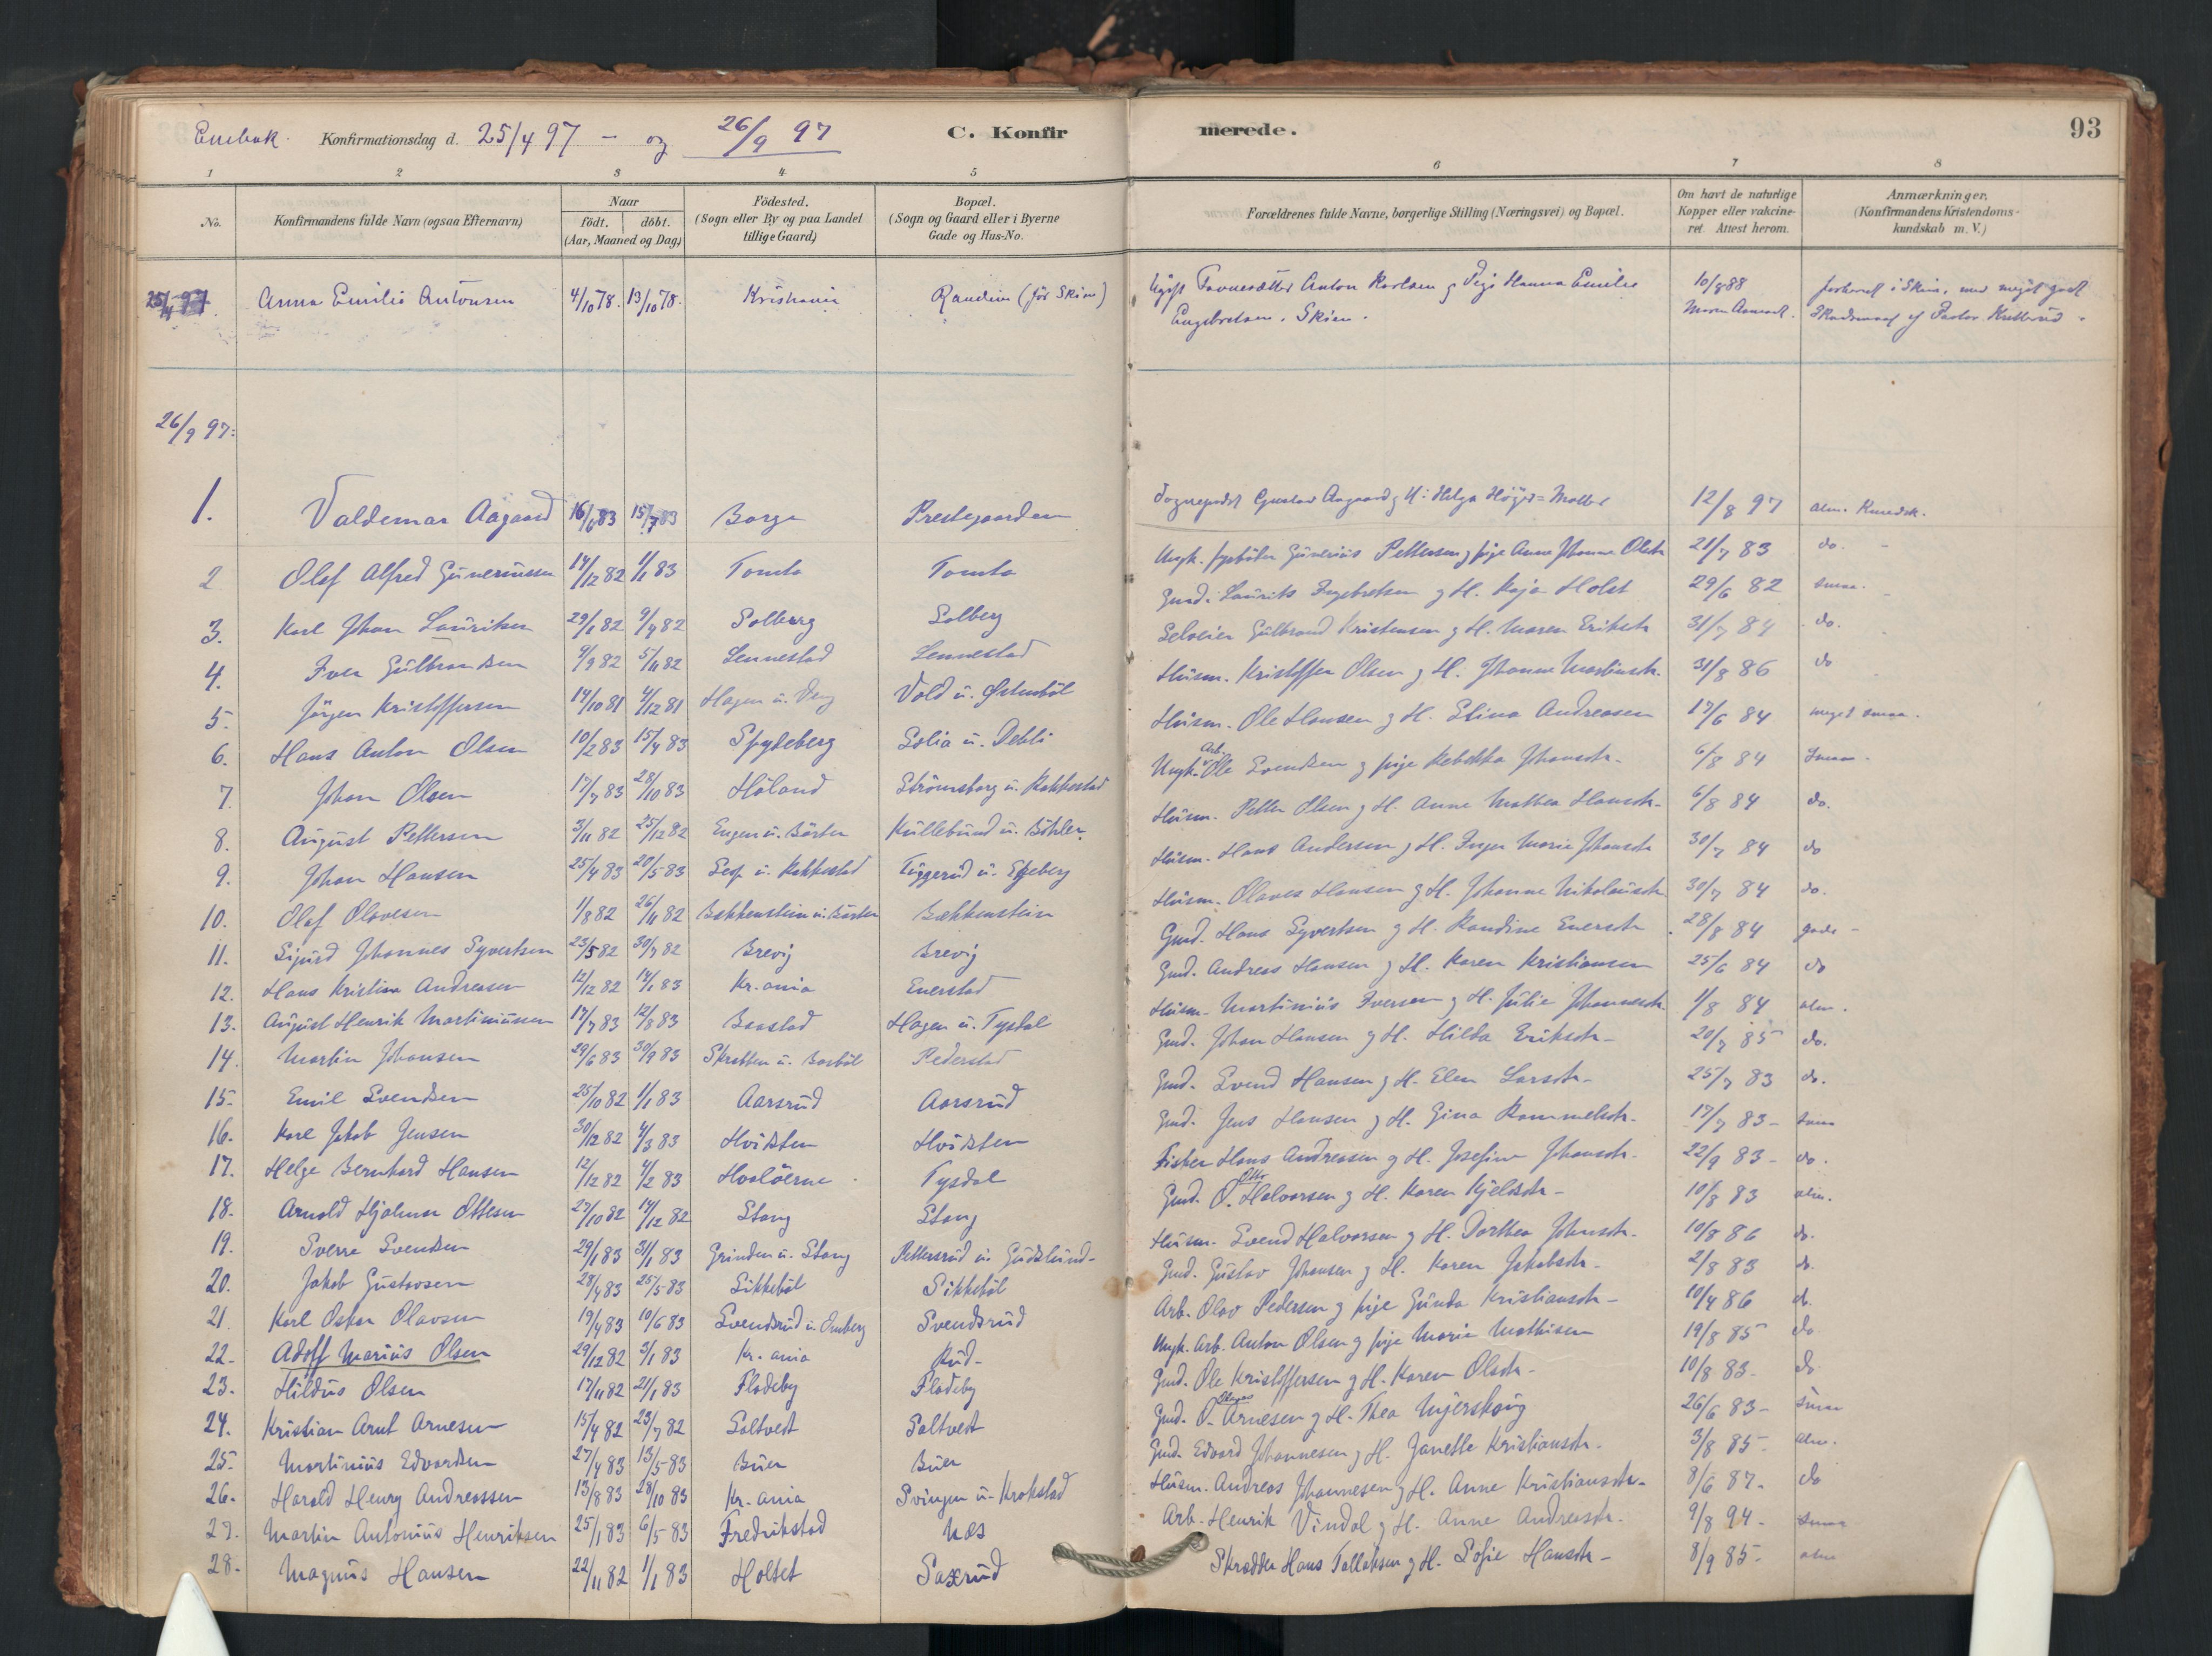 Enebak. Konfirmationsdag d. 25/4 97 - og 26/9 97 C. Konfirmerede. 93
1 2 3 4 5 6 7 8
No. Konfirmandens fulde Navn (ogsaa Efternavn) Naar födt. döbt. (Aar, Maaned og Dag) Födested. (Sogn eller By og paa Landet tillige Gaard) Bopæl. (Sogn og Gaard eller i Byerne Gade og Hus-No. Forældrenes fulde Navne, borgerlige Stilling (Næringsvei) og Bopæl. Om havt de naturlige Kopper eller vakcineret. Attest herom. Anmærkninger. (Konfirmandens Kristendomskundskab m. V.)
25/4 97. Anna Emilie Antonsen 4/10 78. 13/10 78. Kristiania Randim (för Skien) Ugift Anton Karlsen g Pige Hanna Emilie 10/8 88 forberedt i Skien, med meget godt
Engebretsen. Skien. Maren af Pastor
26/9 97:
1. Valdemar Aagaard 16/6 83 15/7 83 Borge Prestegaarden Sogneprest Gustav Aagaard g H: Helga Höyer=Møller 12/8 97 alm. Kundsk.
2 Olaf Alfred Guneriussen 14/12 82 1/1 83 Tomta Tomta Ungk. fyrböter Gunerius Pettersen g pige Anne Johanne Olsdtr 21/7 83 do.
3. Karl Johan Lauritsen 29/1 82 9/4 82 Solberg Solberg Gmd. Laurits Ingebretsen g H. Kaja Holst 29/6 82 smaa.
4. Iver Gulbrandsen 9/9 82 5/11 82 Lennestad Lennestad Selveier Gulbrand Kristensen g H. Maren Eriksdtr 31/7 84 do.
5. Jörgen Kristoffersen 14/10 81 4/12 81 Hagen u. Vold u. Østenböl Husm. Kristoffer Olsen g H. Johanne Martinsdtr. 31/8 86 do
6. Hans Anton Olsen 10/2 83 15/4 83 Spydeberg Lolia u. Dehli Husm. Ole Hansen g H. Elina Andreasen 17/6 84 meget smaa.
7. Johan Olsen 17/7 83 28/10 83 Höland Strömsborg u. Rakkestad Ungk. Arb. Ole Svendsen g pige Rebekka Johansdtr. 6/8 84 Smaa.
8. August Pettersen 3/11 82 25/12 82 Engen u. Börter Küllebund u. Böhler. Husm. Petter Olsen g H. Anne Mathea Hansdtr. 6/8 84 do.
9. Johan Hansen 25/4 83 20/5 83 u. Rakkestad Tuggerud u. Ekeberg Husm. Hans Andersen g H. Inger Marie Johansdtr 30/7 84 do
10. Olaf Olavesen 1/8 82 26/11 82 Bækkenstein u. Börter Bækkenstein Husm. Olaves Hansen g H. Johanne Nikolaisdtr. 30/7 84 do.
11. Sigurd Johannes Syvertsen 23/5 82 30/7 82 Brevig Brevig Gmd. Hans Syvertsen g H. Randine Enersdtr. 28/8 84 gode
12. Hans Kristian Andreasen 12/12 82 14/1 83 Kr.ania Enerstad Gmd. Andreas Hansen g H. Karen Kristiansen 25/6 84 do
13. August Henrik Martiniussen 17/7 83 12/8 83 Baastad Hagen u. Tysdal Husm. Martinius Iversen g H. Julie Johannesdtr. 1/8 84 alm.
14. Martin Johansen 29/6 83 30/9 83 Skratten u. Börböl Pederstad Gmd. Johan Hansen g H. Hilda Eriksdtr. 20/7 85 do.
15. Emil Svendsen 25/10 82 1/1 83 Aarsrud Aarsrud Gmd. Svend Hansen g H. Elen Larsdtr. 25/7 83 do.
16. Karl Jakob Jensen 30/12 82 4/3 83 Hvidsten Hvidsten Gmd. Jens Hansen g H. Gina 17/7 83 smaa
17. Helge Bernhard Hansen 12/12 82 4/2 83 Hvalöerne Tysdal Fisker Hans Andreasen g H. Josefine Johansdtr. 22/9 83 do.
18. Arnold Hjalmar Ottesen 27/10 82 17/12 82 Stang Stang Gmd. O. Otto Halvorsen g H. Karen Kjeldsdtr. 10/8 83 alm.
19. Sverre Svendsen 29/1 83 31/1 83 Grinden u. Stang Pettersrud u. Gudslund Husm. Svend Halvorsen g H. Dorthea Johansdtr. 10/8 86 do.
20. Jakob Gustavsen 28/4 83 25/5 83 Sikkeböl Sikkeböl Gmd. Gustav Johansen g H. Karen Jakobsdtr. 2/8 83 do.
21. Karl Oskar Olavsen 19/4 83 10/6 83 Svendsrud u. Omberg Svendsrud Arb. Olav Pedersen g pige Gunda Kristiansdtr. 10/4 86 do.
22. Adolf Marius Olsen 29/12 82 3/1 83 Kr.ania Rud Ungk. Arb. Anton Olsen g pige Marie Mathisen 19/8 85 do
23. Hildus Olsen 17/11 82 21/1 83 Flodeby Flodeby Gmd. Ole Kristoffersen g H. Karen Olsdtr. 10/8 83. do
24. Kristian Arnt Arnesen 15/4 82 23/7 82 Saltvedt Saltvedt Gmd. O. Arnesen g H. Thea Mjerskoug 26/6 83 smaa
25. Martinius Edvardsen 27/4 83 13/5 83 Buer Buer Gmd. Edvard Johannesen g H. Janette Kristiansdtr. 3/8 85. alm.
26. Harald Henry Andreassen 13/8 83 28/10 83 Kr.ania Svingen u. Krokstad Husm. Andreas Johannesen g H. Anne Kristiansdtr. 8/6 87. do
27. Martin Antonius Henriksen 25/1 83 6/5 83 Fredrikstad Næs Arb. Henrik Vindal g H. Anne Andreasdtr. 9/8 94. smaa
28. Magnus Hansen 22/11 82 1/1 83 Holtet Saxrud Skrædder Hans Tollefsen g H. Sofie Hansdtr. 8/9 85. alm